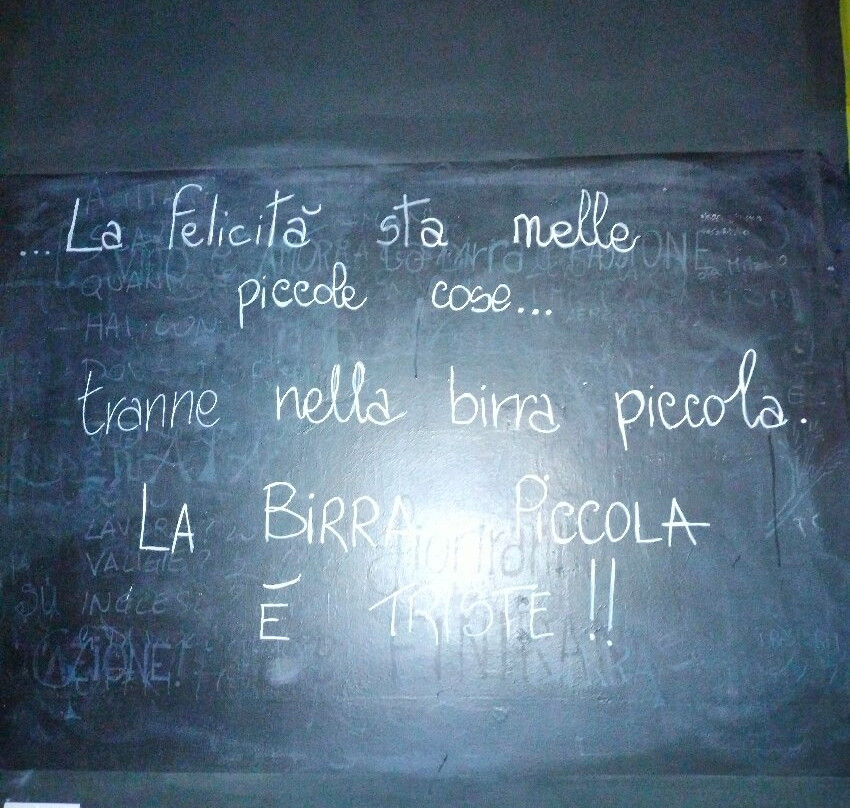 ...La felicità sta nelle
piccole cose...
tranne nella birra piccola.
LA BIRRA PICCOLA
È TRISTE!!